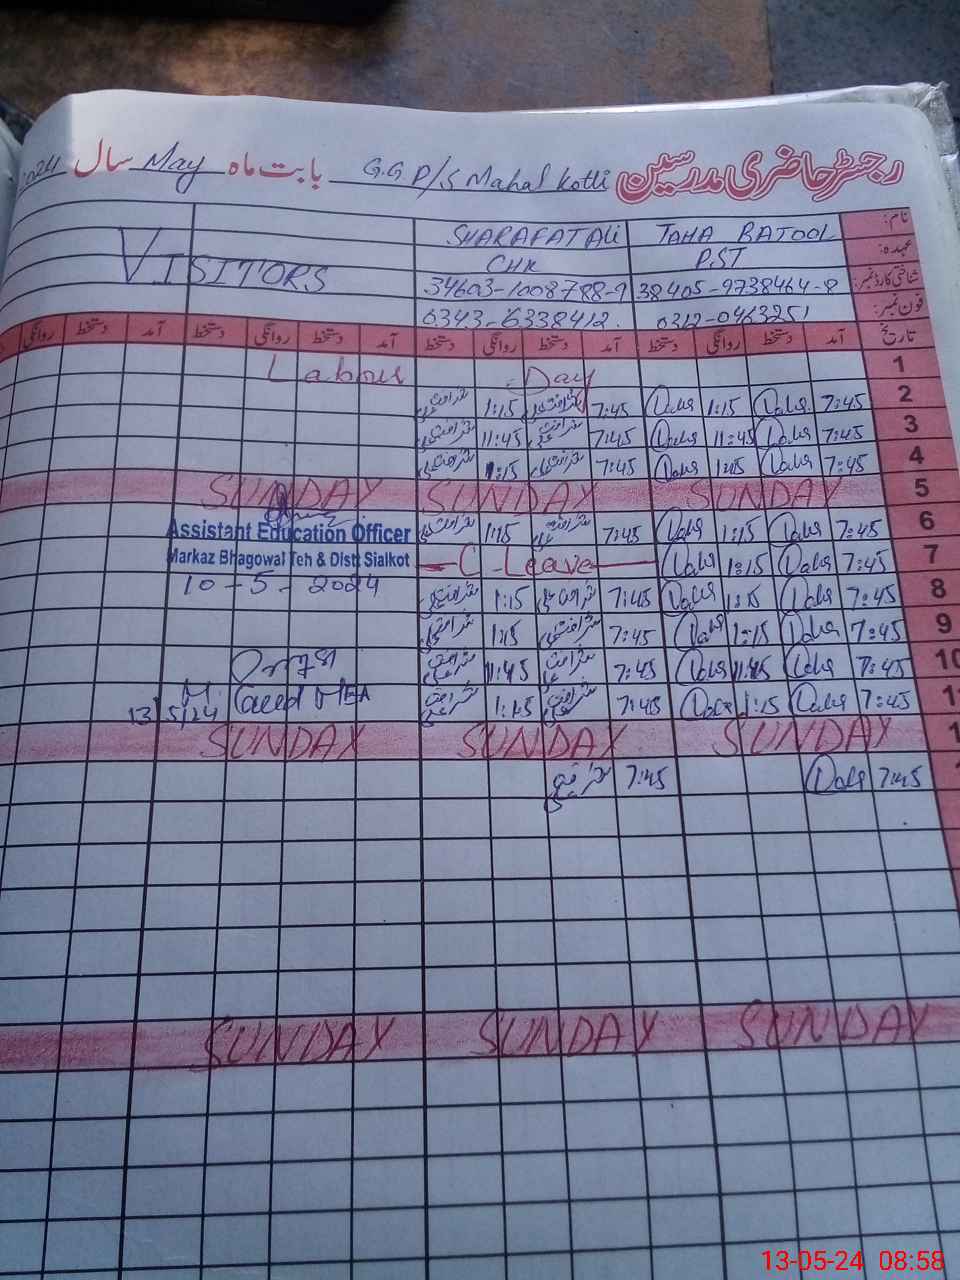 رجسٹر حاضری مدرسین G.G.P/S Mahal Kotli بابت ماہ May سال 2024
نام: TAHA BATOOL SHARAFAT ALI
عہدہ: PST CHK VISITORS
شناختی کارڈ نمبر: 38405-9738464-8 34603-1008788-9
فون نمبر: 0312-0463251 0343-6338412.
تاریخ آمد دستخط روانگی دستخط آمد دستخط روانگی دستخط آمد دستخط روانگی دستخط آمد دستخط روانگی
1 Labour Day
2 7:45 Taha 1:15 Taha 7:45 شرافت علی 1:15 شرافت علی
3 7:45 Taha 11:45 Taha 7:45 شرافت علی 11:45 شرافت علی
4 7:45 Taha Taha 7:45 شرافت علی 1:15 شرافت علی
5 SUNDAY SUNDAY SUNDAY
6 7:45 Taha 1:15 Taha 7:45 شرافت علی 1:15 شرافت علی
Assistant Education Officer
7 7:45 Taha 1:15 Taha C-Leave
Markaz Bhagowal Teh & Distt Sialkot
8 7:45 Taha 1:15 Taha 7:45 شرافت علی 1:15 شرافت علی
10-5-2024
9 7:45 Taha 1:15 Taha 7:45 شرافت علی 1:15 شرافت علی
10 7:45 Taha 11:45 Taha 7:45 شرافت علی 11:45 شرافت علی
1 7:45 Taha 1:15 Taha 7:45 شرافت علی 1:15 شرافت علی
M. Saeed MEA
13/5/24
1 SUNDAY SUNDAY SUNDAY
7:45 Taha 7:45 شرافت علی
SUNDAY SUNDAY SUNDAY
13-05-24 08:58